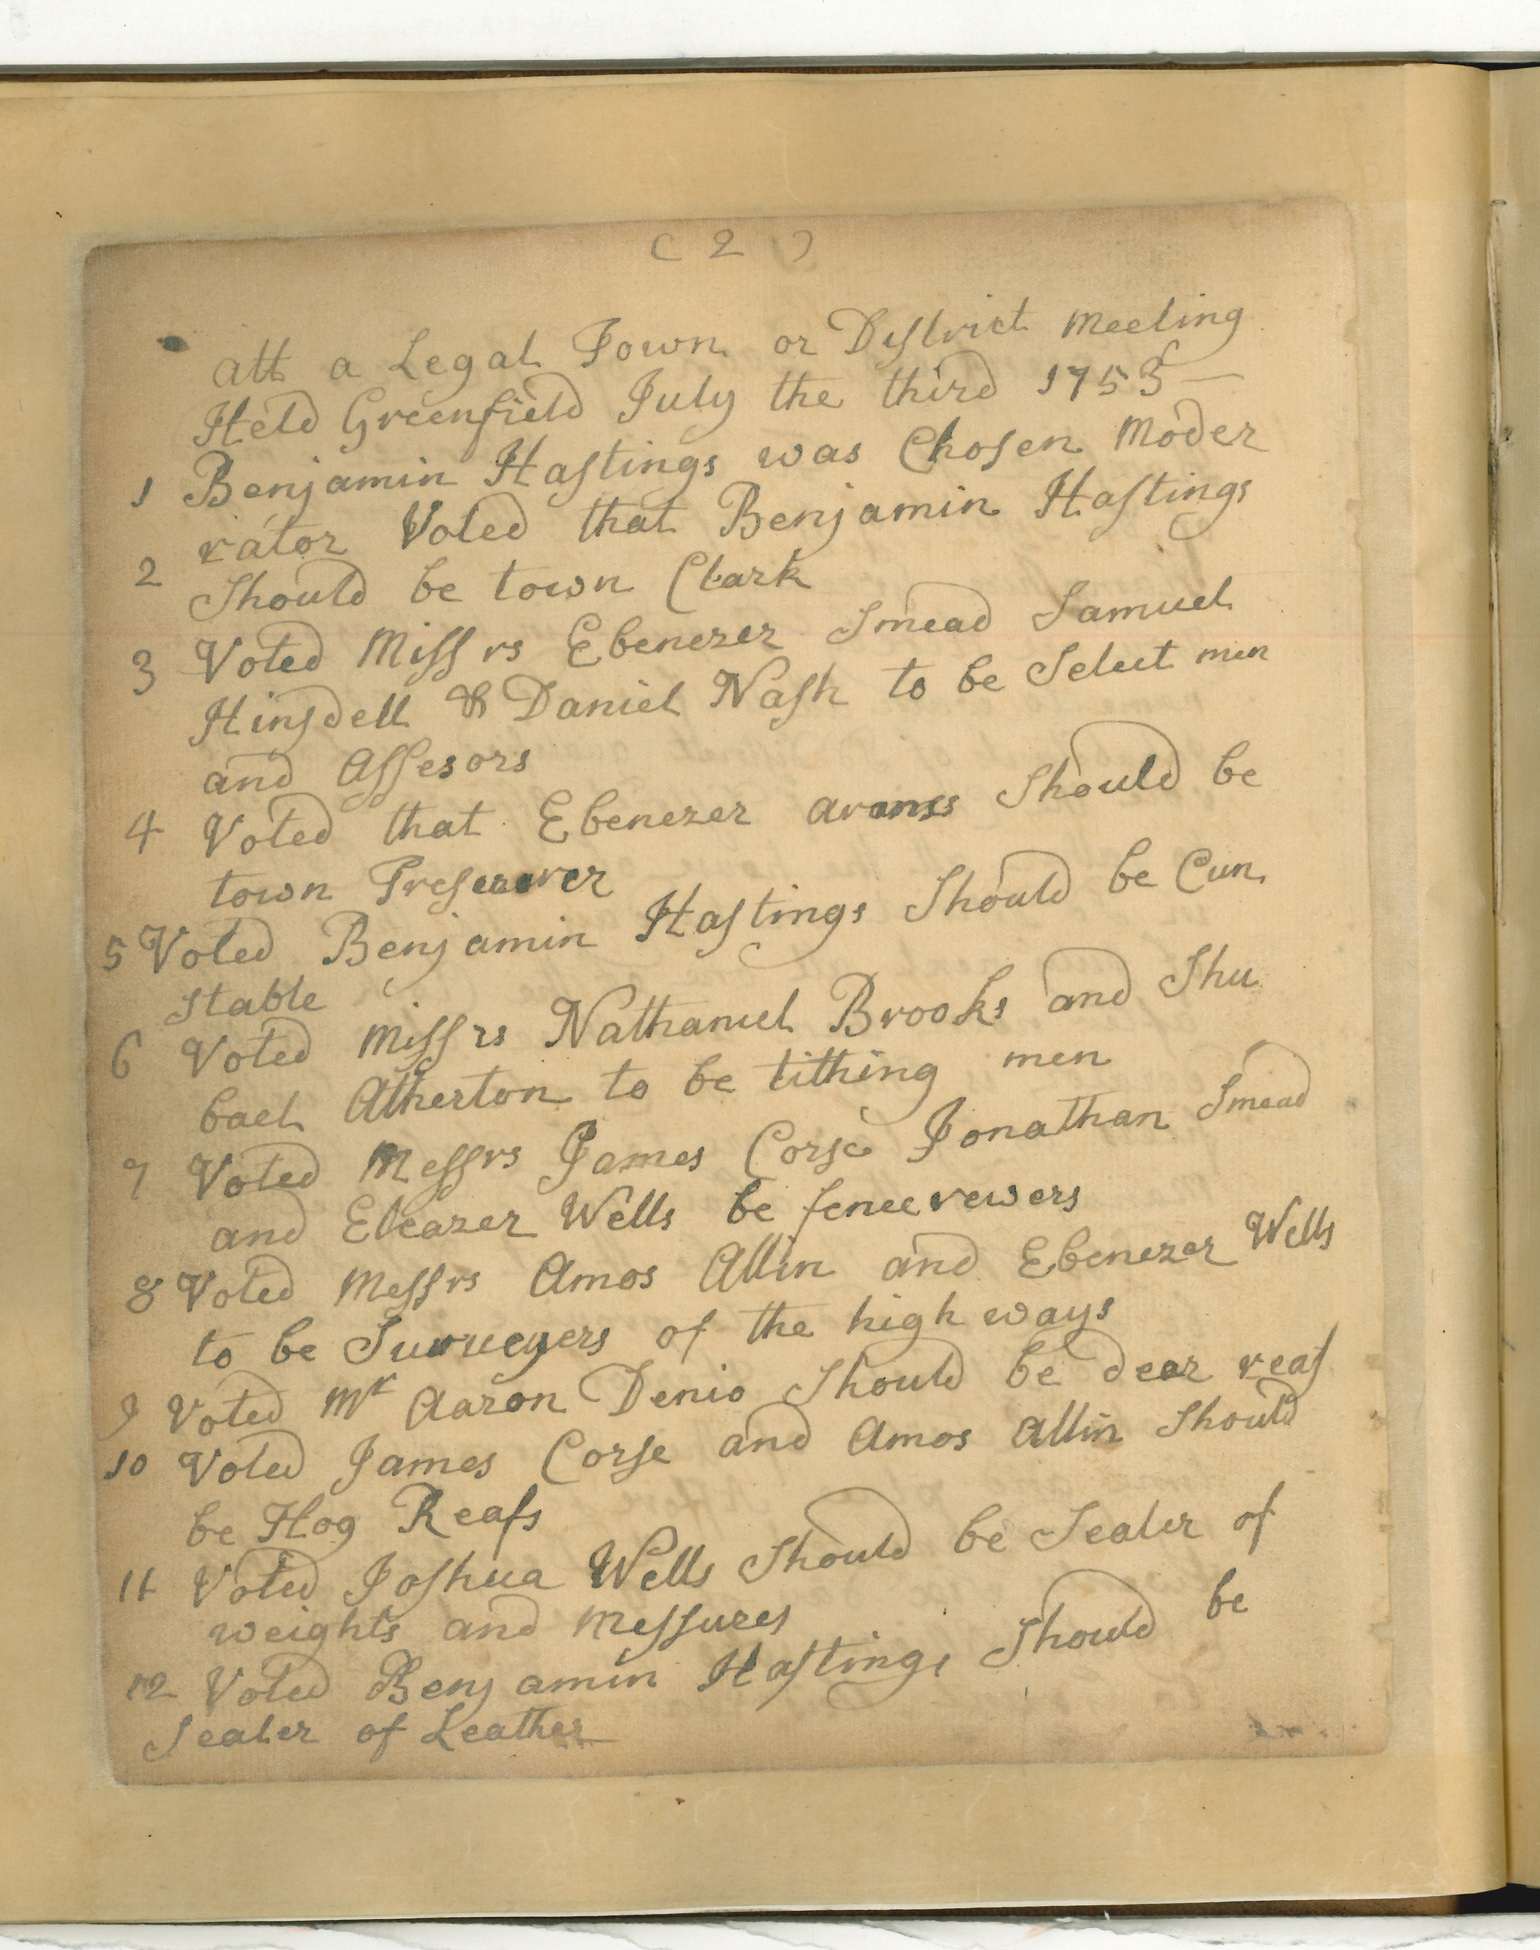 ( 2 )
att a Legal Town or District meeting
Held Greenfield July the third 1753 —
1 Benjamin Hastings was Chosen Moder
rator Voted that Benjamin Hastings
2 Should be town Clark
3 Voted Missrs Ebenezer Smead Samuel
Hinsdell & Daniel Nash to be Select men
and Assesors
4 Voted that Ebenezer arams Should be
town
5 Voted Benjamin Hastings Should be Cun
stable
6 Voted Missrs Nathaniel Brooks and Shu
bael Atherton to be tithing men
7 Voted Messrs James Corse Jonathan Smead
and Eleazer Wells be fence vewers
8 Voted Messrs Amos Allin and Ebenezer Wells
to be Surueyers of the high ways
9 Voted Mr Aaron Denio Should be dear reaf
10 Voted James Corse and Amos Allin Should
be Hog Reafs
11 Voted Joshua Wells Should be Sealer of
weights and Messures
12 Voted Benjamin Hastings Should be
Sealer of Leather